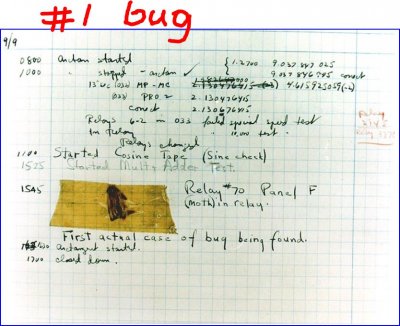 #1 bug
9/9
0800 antan started
1000 " stopped - antan ✓
{ 1.2700 9.037 847 025
9.037 846 995 correct
13"uc (032) MP-MC 2.130476415 4.615925059(-2)
(033) PRO 2 2.130476415
correct 2.130676415
Relays 6-2 in 033 failed special speed test
in relay " 10.000 test.
Relays changed
Relay
2145
Relay 3370
1100 Started Cosine Tape (Sine check)
1525 Started Mult+Adder Test.
1545 Relay #70 Panel F
(moth) in relay.
First actual case of bug being found.
1630 antangent started.
1700 closed down.